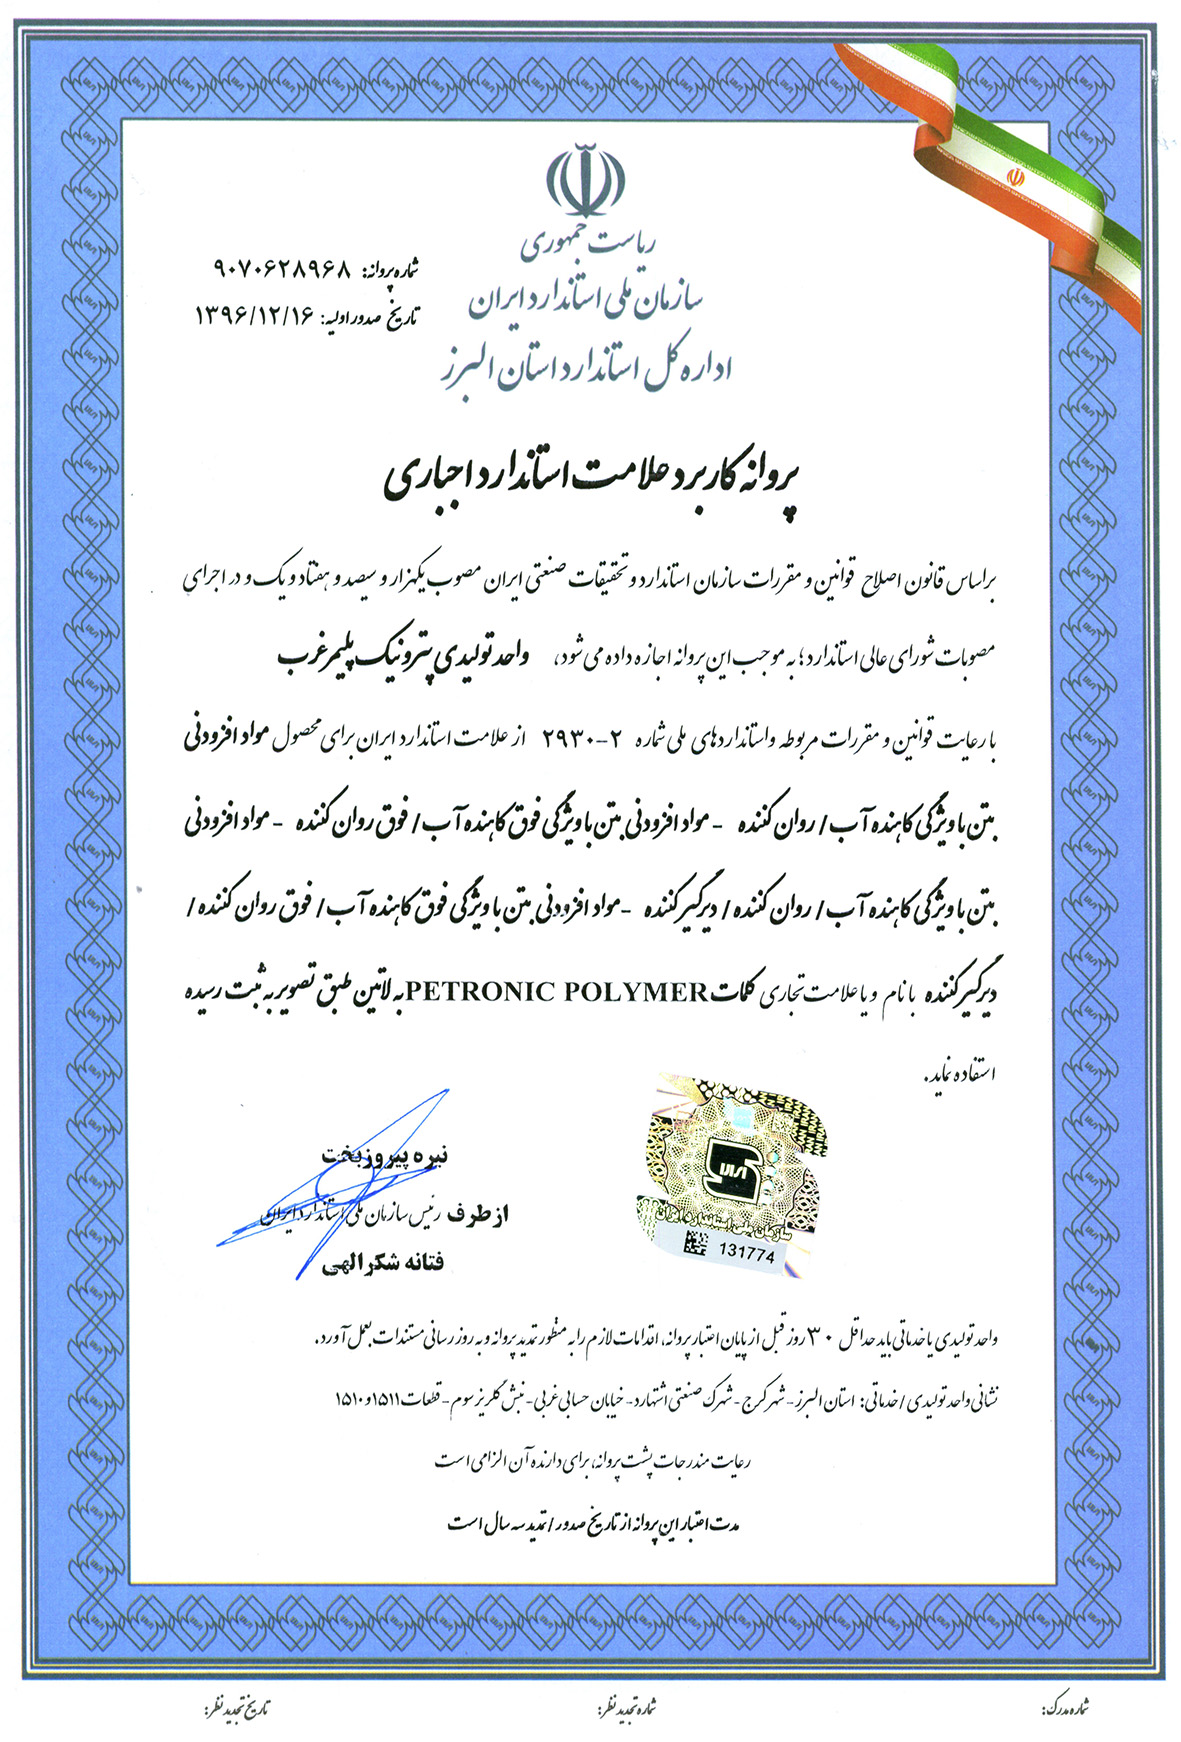 ریاست جمهوری
سازمان ملی استاندارد ایران
اداره کل استاندارد استان البرز
شماره پروانه: ۹۰۷۰۶۲۸۹۶۸
تاریخ صدور اولیه: ۱۳۹۶/۱۲/۱۶
پروانه کاربرد علامت استاندارد اجباری
براساس قانون اصلاح قوانین و مقررات سازمان استاندارد و تحقیقات صنعتی ایران مصوب یکهزار و سیصد و هفتاد و یک و در اجرای
مصوبات شورای عالی استاندارد؛ به موجب این پروانه اجازه داده می شود، واحد تولیدی پترونیک پلیمر غرب
با رعایت قوانین و مقررات مربوطه و استانداردهای ملی شماره ۲-۲۹۳۰ از علامت استاندارد ایران برای محصول مواد افزودنی
بتن با ویژگی کاهنده آب / روان کننده - مواد افزودنی بتن با ویژگی فوق کاهنده آب / فوق روان کننده - مواد افزودنی
بتن با ویژگی کاهنده آب / روان کننده / دیرگیر کننده - مواد افزودنی بتن با ویژگی فوق کاهنده آب / فوق روان کننده /
دیرگیر کننده با نام و یا علامت تجاری کلمات PETRONIC POLYMER به لاتین طبق تصویر به ثبت رسیده
استفاده نماید.
نیره پیروزبخت
از طرف رئیس سازمان ملی استاندارد ایران
فتانه شکرالهی
سازمان ملی استاندارد ایران
131774
واحد تولیدی یا خدماتی باید حداقل ۳۰ روز قبل از پایان اعتبار پروانه، اقدامات لازم را به منظور تمدید پروانه و به روز رسانی مستندات بعمل آورد.
نشانی واحد تولیدی / خدماتی: استان البرز - شهر کرج - شهرک صنعتی اشتهارد - خیابان حسابی غربی - نبش گلریز سوم - قطعات ۱۵۱۱ و ۱۵۱۰
رعایت مندرجات پشت پروانه، برای دارنده آن الزامی است
مدت اعتبار این پروانه از تاریخ صدور / تمدید سه سال است
شماره مدرک:
شماره تجدید نظر:
تاریخ تجدید نظر: